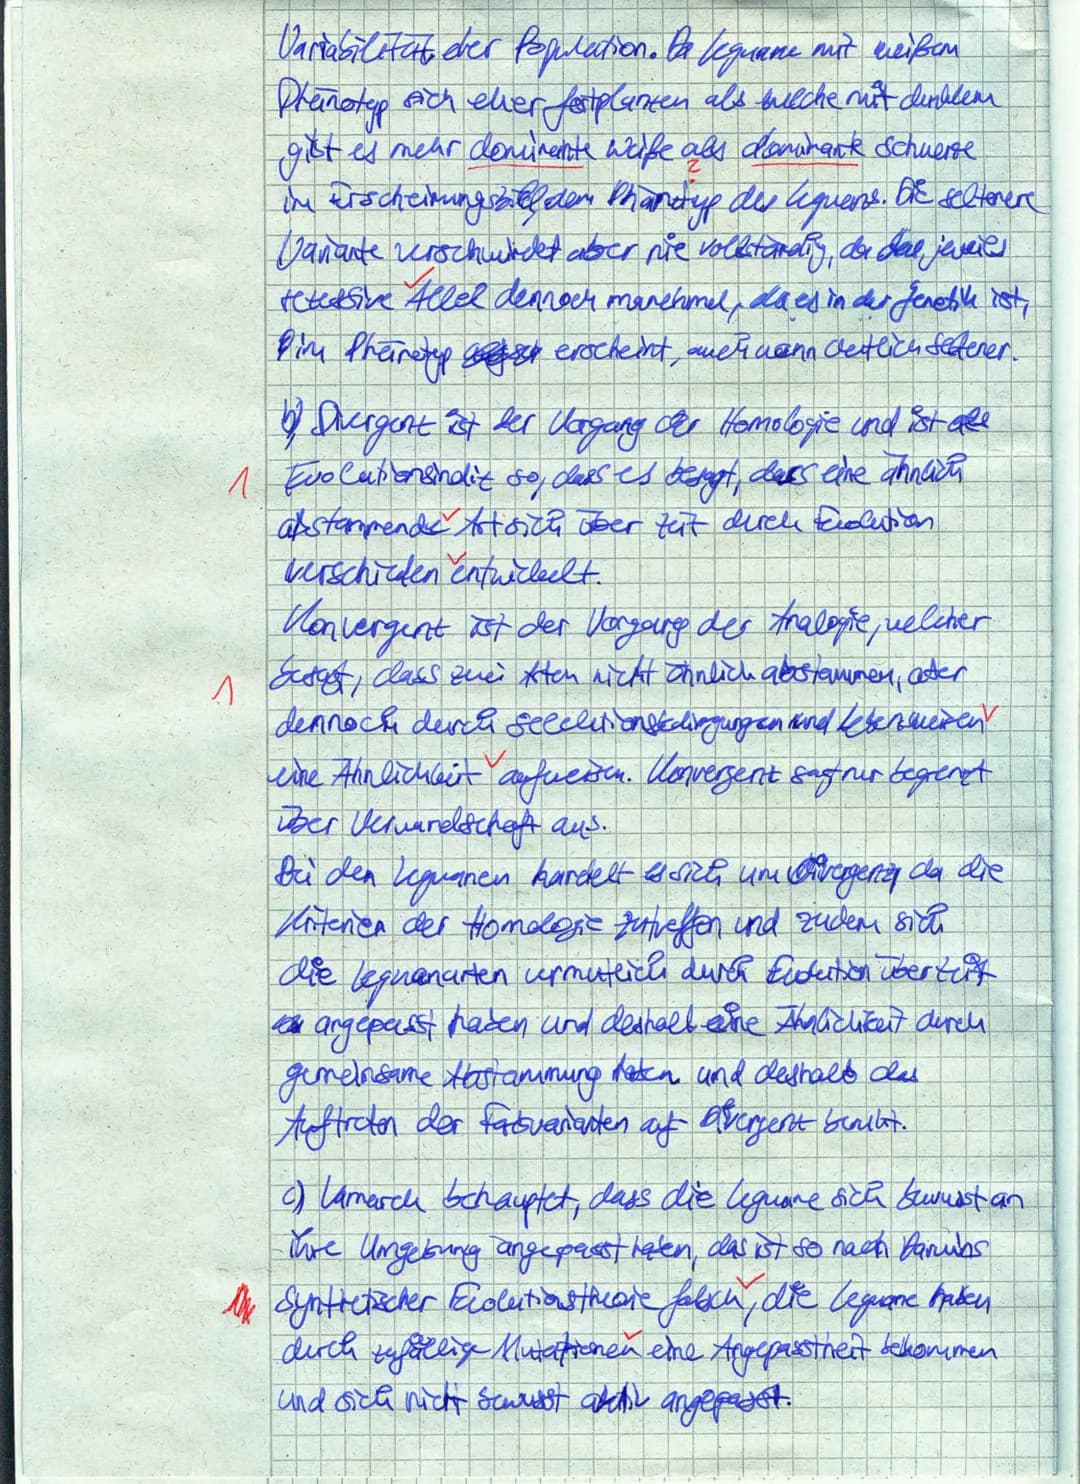 Variabilität der Population. Da Leguane mit weißem
Phänotyp sich eher fortpflanzen als welche mit dunklem
gibt es mehr dominante Weiße als dominante Schwarze
?
im Erscheinungsbild, dem Phänotyp des Leguans. Die seltenere
Variante verschwindet aber nie vollständig, da das jeweils
rezessive Allel dennoch manchmal, da es in der Genetik ist,
im Phänotyp erscheint, auch wenn deutlich seltener.
b) Divergent ist der Vorgang der Homologie und ist als
1 Evolutionsindiz so, dass es besagt, dass eine ähnlich
abstammende Art sich über Zeit durch Evolution
verschieden entwickelt.
Konvergent ist der Vorgang der Analogie, welcher
1 besagt, dass zwei Arten nicht ähnlich abstammen, aber
dennoch durch Selektionsbedingungen und Lebensweisen
eine Ähnlichkeit aufweisen. Konvergent sagt nur begrenzt
über Verwandschaft aus.
Bei den Leguanen handelt es sich um Divergenz, da die
Kriterien der Homologie zutreffen und zudem sich
die Leguanarten vermutlich durch Evolution über Zeit
angepasst haben und deshalb eine Ähnlichkeit durch
gemeinsame Abstammung haben und deshalb das
Auftreten der Farbvarianten auf Divergent beruht.
c) Lamarck behauptet, dass die Leguane sich bewusst an
ihre Umgebung angepasst haben, das ist so nach Darwins
Synthetischer Evolutionstheorie falsch, die Leguane haben
durch zufällige Mutationen eine Angepasstheit bekommen
und sich nicht bewusst aktiv angepasst.